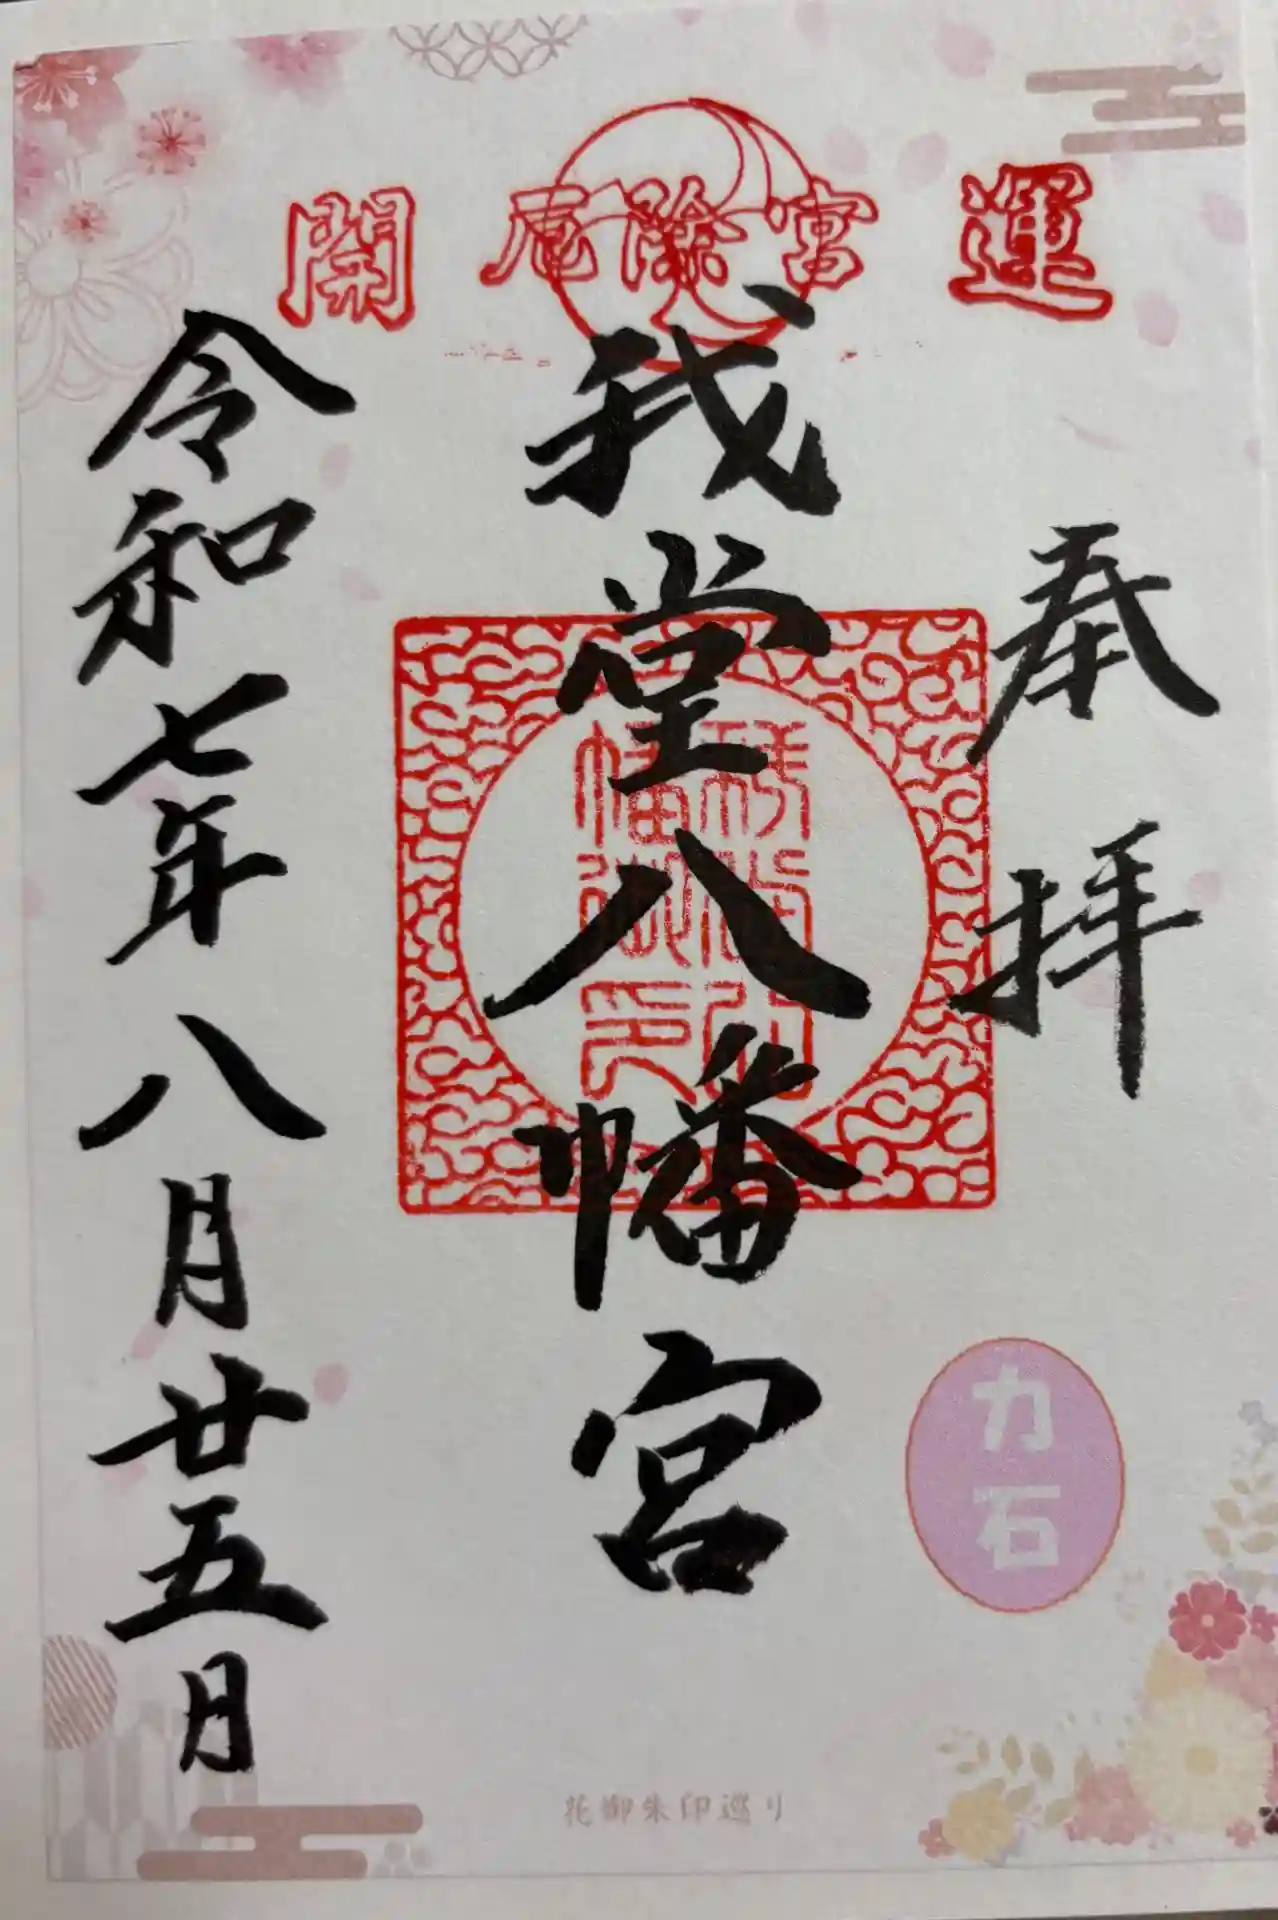 開運
厄除宮
奉拝
我堂八幡宮
令和七年八月廿五日
力石
花御朱印巡り